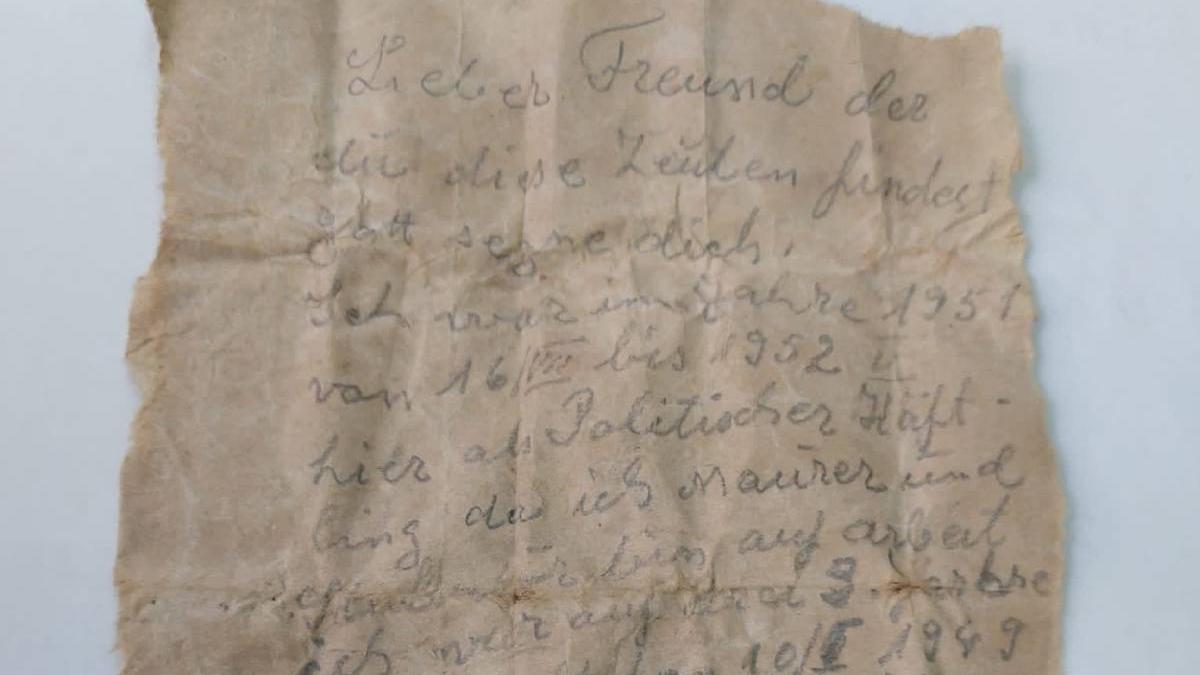 Lieber Freund der
du diese Zeulen findest
gott segne dich.
Ich war im Jahre 1951
von 16/VII bis 1952 II
hier als Politischer Häft-
ling da ich Maurer und
bin auf arbeit
ich war auf drei 3. Jahre
10/I 1949